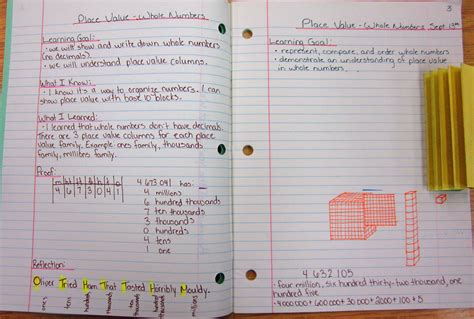 Place Value - Whole Numbers
Learning Goal:
• we will show and write down whole numbers
(no decimals).
• we will understand place value columns.
What I Know:
• I know it's a way to organize numbers. I can
show place value with base 10 blocks.
What I Learned:
• I learned that whole numbers don't have decimals.
There are 3 place value columns for each place
value family. Example: ones family, thousands
family, millions family.
Proof:
4 6 7 3 0 4 1
4 673 041 has:
4 millions
6 hundred thousands
7 ten thousands
3 thousands
0 hundreds
4 tens
1 one
Reflection:
Oliver Tried Ham That Tasted Horribly Mouldy.
ones
tens
hundreds
thousands
millions
3
Place Value - Whole Numbers Sept
Learning Goal:
• represent, compare, and order whole numbers
• demonstrate an understanding of place value
in whole numbers
4 632 105
- four million, six hundred thirty-two thousand, one
hundred five
- 4 000 000 + 600 000 + 30 000 + 2000 + 100 + 5